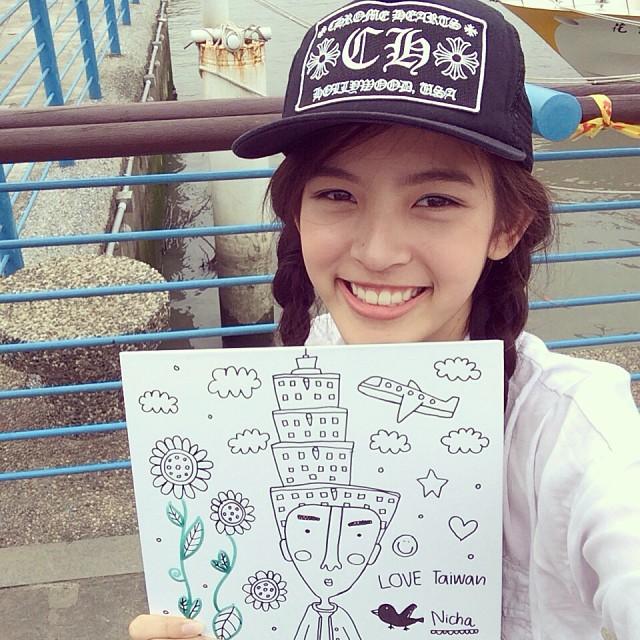 CHROME HEARTS
CH
HOLLYWOOD, USA
花
LOVE Taiwan
Nicha